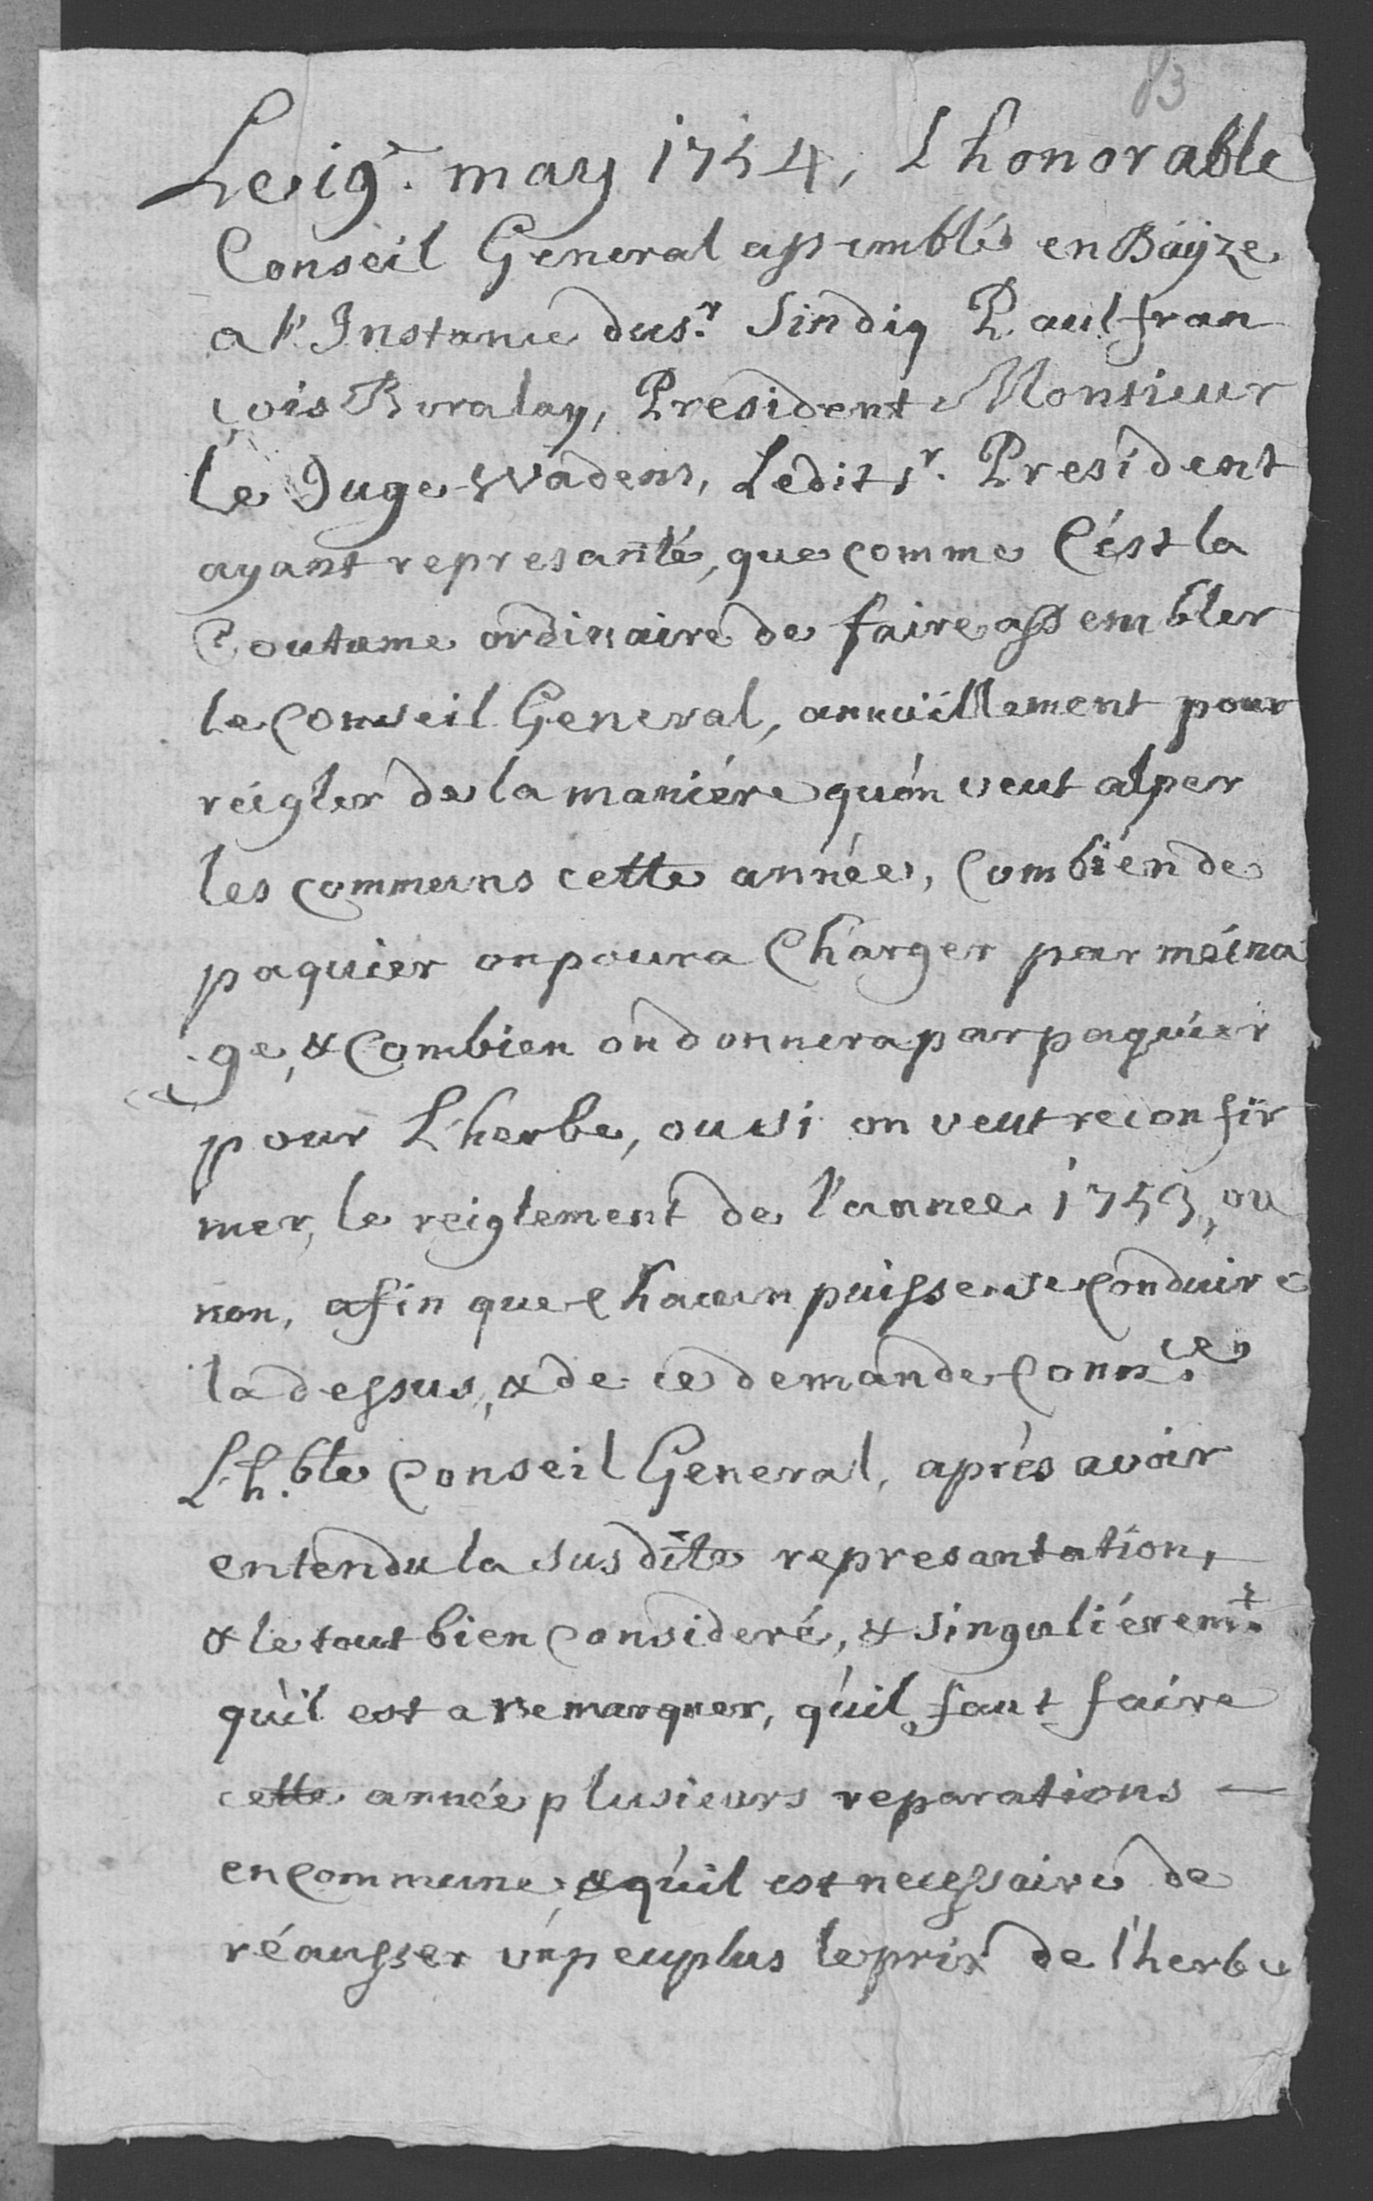 83
Le 19e. may 1754, L'honorable
Conseil General assemblés en Bäÿze
a l'Instance du sr. Sindiq Paul fran
çois Buralay, President Monsieur
Le Juge Wadens, Ledit sr. President
ayant represanté, que comme C'ést la
Coutume ordinaire de faire assembler
le Conseil General, anuéillement pour
réigler de la maniére qu'on veut alper
les communs cette année, Combien de
paquier on poura Charger par ména
ge, & Combien on donnera par paquier
pour L'herbe, ou si on veut reconfir
mer, le reiglement de l'annee 1753, ou
non, afin que Chacun puisse se Conduire
la dessus, & de ce demande Connce.
L'h.ble Conseil General, aprés avoir
entendu la susdite represantation,
& le tout bien Consideré, & singuliéremt.
qu'il est a remarquer, qu'il faut faire
cette année plusieurs reparations —
en Commune, & qu'il est necessaire de
réausser un peu plus le prix de l'herbe